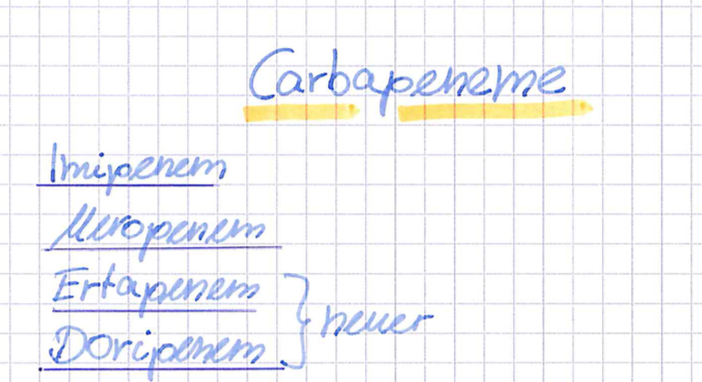 Carbapeneme
Imipenem
Meropenem
Ertapenem
Doripenem
} neuer